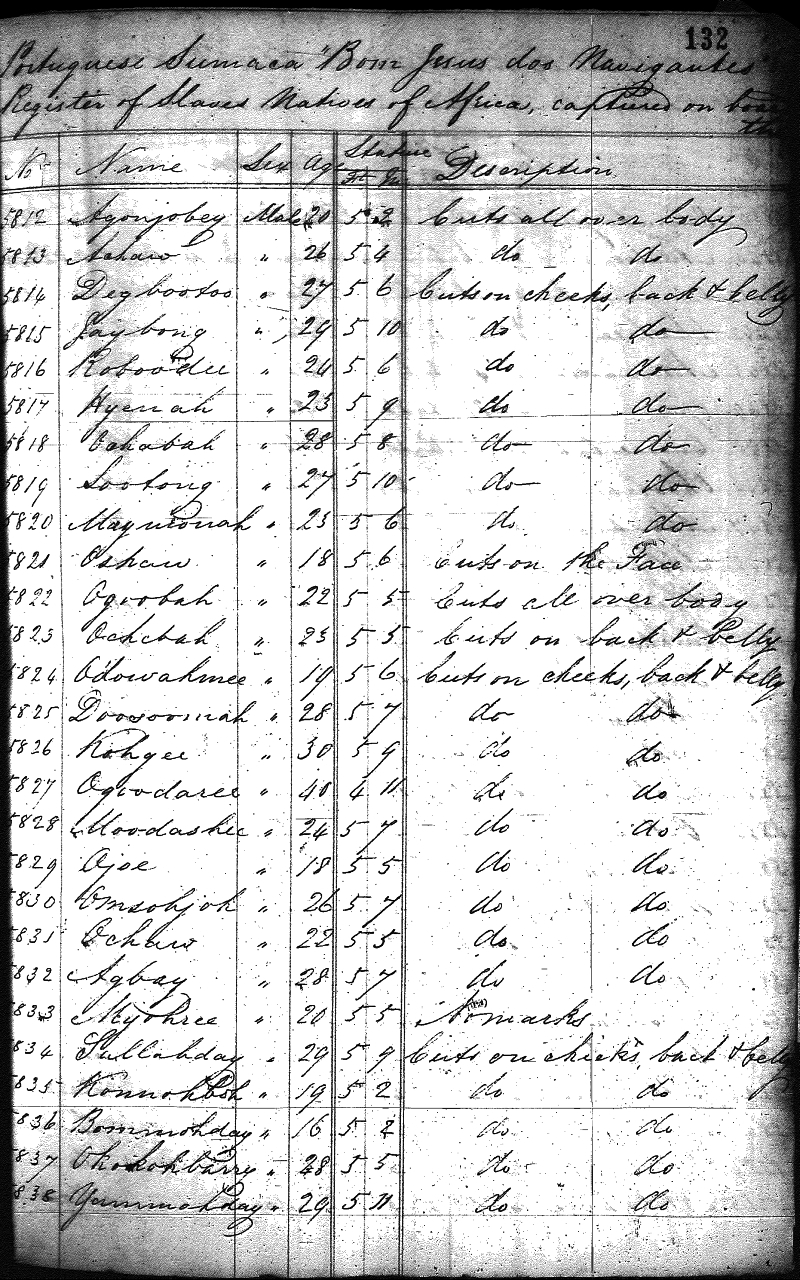 132
Portuguese Sumaca "Bom Jesus dos Navigantes"
Register of Slaves Natives of Africa, captured on board
the
No Name Sex Age Stature Description
Ft In
5812 Agonjobey Male 20 5 2 Cuts all over body
5813 Achaw " 26 5 4 do do
5814 Degbootoo " 27 5 6 Cuts on cheeks, back & belly
5815 Jaybong " 29 5 10 do do
5816 Roboodee " 24 5 6 do do
5817 Hyenah " 23 5 9 do do
5818 Ochabah " 28 5 8 do do
5819 Lootong " 27 5 10 do do
5820 Maymonah " 23 5 6 do do
5821 Oshaw " 18 5 6 Cuts on the Face
5822 Ogoobah " 22 5 5 Cuts all over body
5823 Ochebah " 23 5 5 Cuts on back & belly
5824 Odowahmee " 19 5 6 Cuts on cheeks, back & belly
5825 Doosoomah " 28 5 7 do do
5826 Kohgee " 30 5 9 do do
5827 Ogoodaree " 40 4 11 do do
5828 Moodashee " 24 5 7 do do
5829 Ojoe " 18 5 5 do do
5830 Omsohjoh " 26 5 7 do do
5831 Ochaw " 22 5 5 do do
5832 Agbay " 28 5 7 do do
5833 Myohree " 20 5 5 No marks
5834 Sullahday " 29 5 9 Cuts on cheeks, back & belly
5835 Konnohboh " 19 5 2 do do
5836 Bommohday " 16 5 2 do do
5837 Ohokohbarry " 28 5 5 do do
5838 Yummohday " 29 5 11 do do